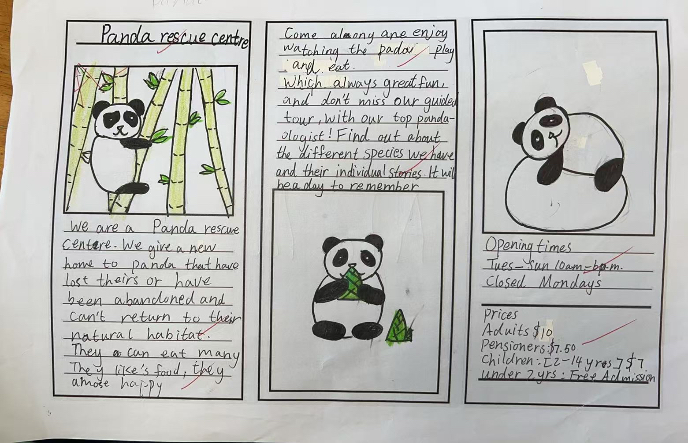 Panda rescue centre
We are a Panda rescue
centere. We give a new
home to panda that have
lost theirs or have
been abandoned and
can't return to their
natural habitat.
They can eat many
They like's food, they
amose happy
Come almony ane enjoy
watching the pada play
and eat.
Which always great fun,
and don't miss our guided
tour, with our top panda-
ologist! Find out about
the different species we have
and their individual stories. It will
be a day to remember
Opening times
Tues - Sun 10am - 6p.m.
Closed Mondays
Prices
Adults $10
Pensioners: $7.50
Children: [2-14 yrs] $7
under 2 yrs: Free Admission